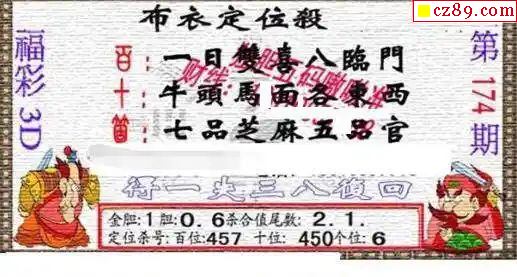 cz89.com
布衣定位殺
福彩3D
第174期
百：一日雙喜八臨門
十：牛頭馬面各東西
箇：七品芝麻五品官
得一史三八復回
金胆:1胆:0.6杀合值尾数:2.1.
定位杀号:百位:457 十位:450个位:6